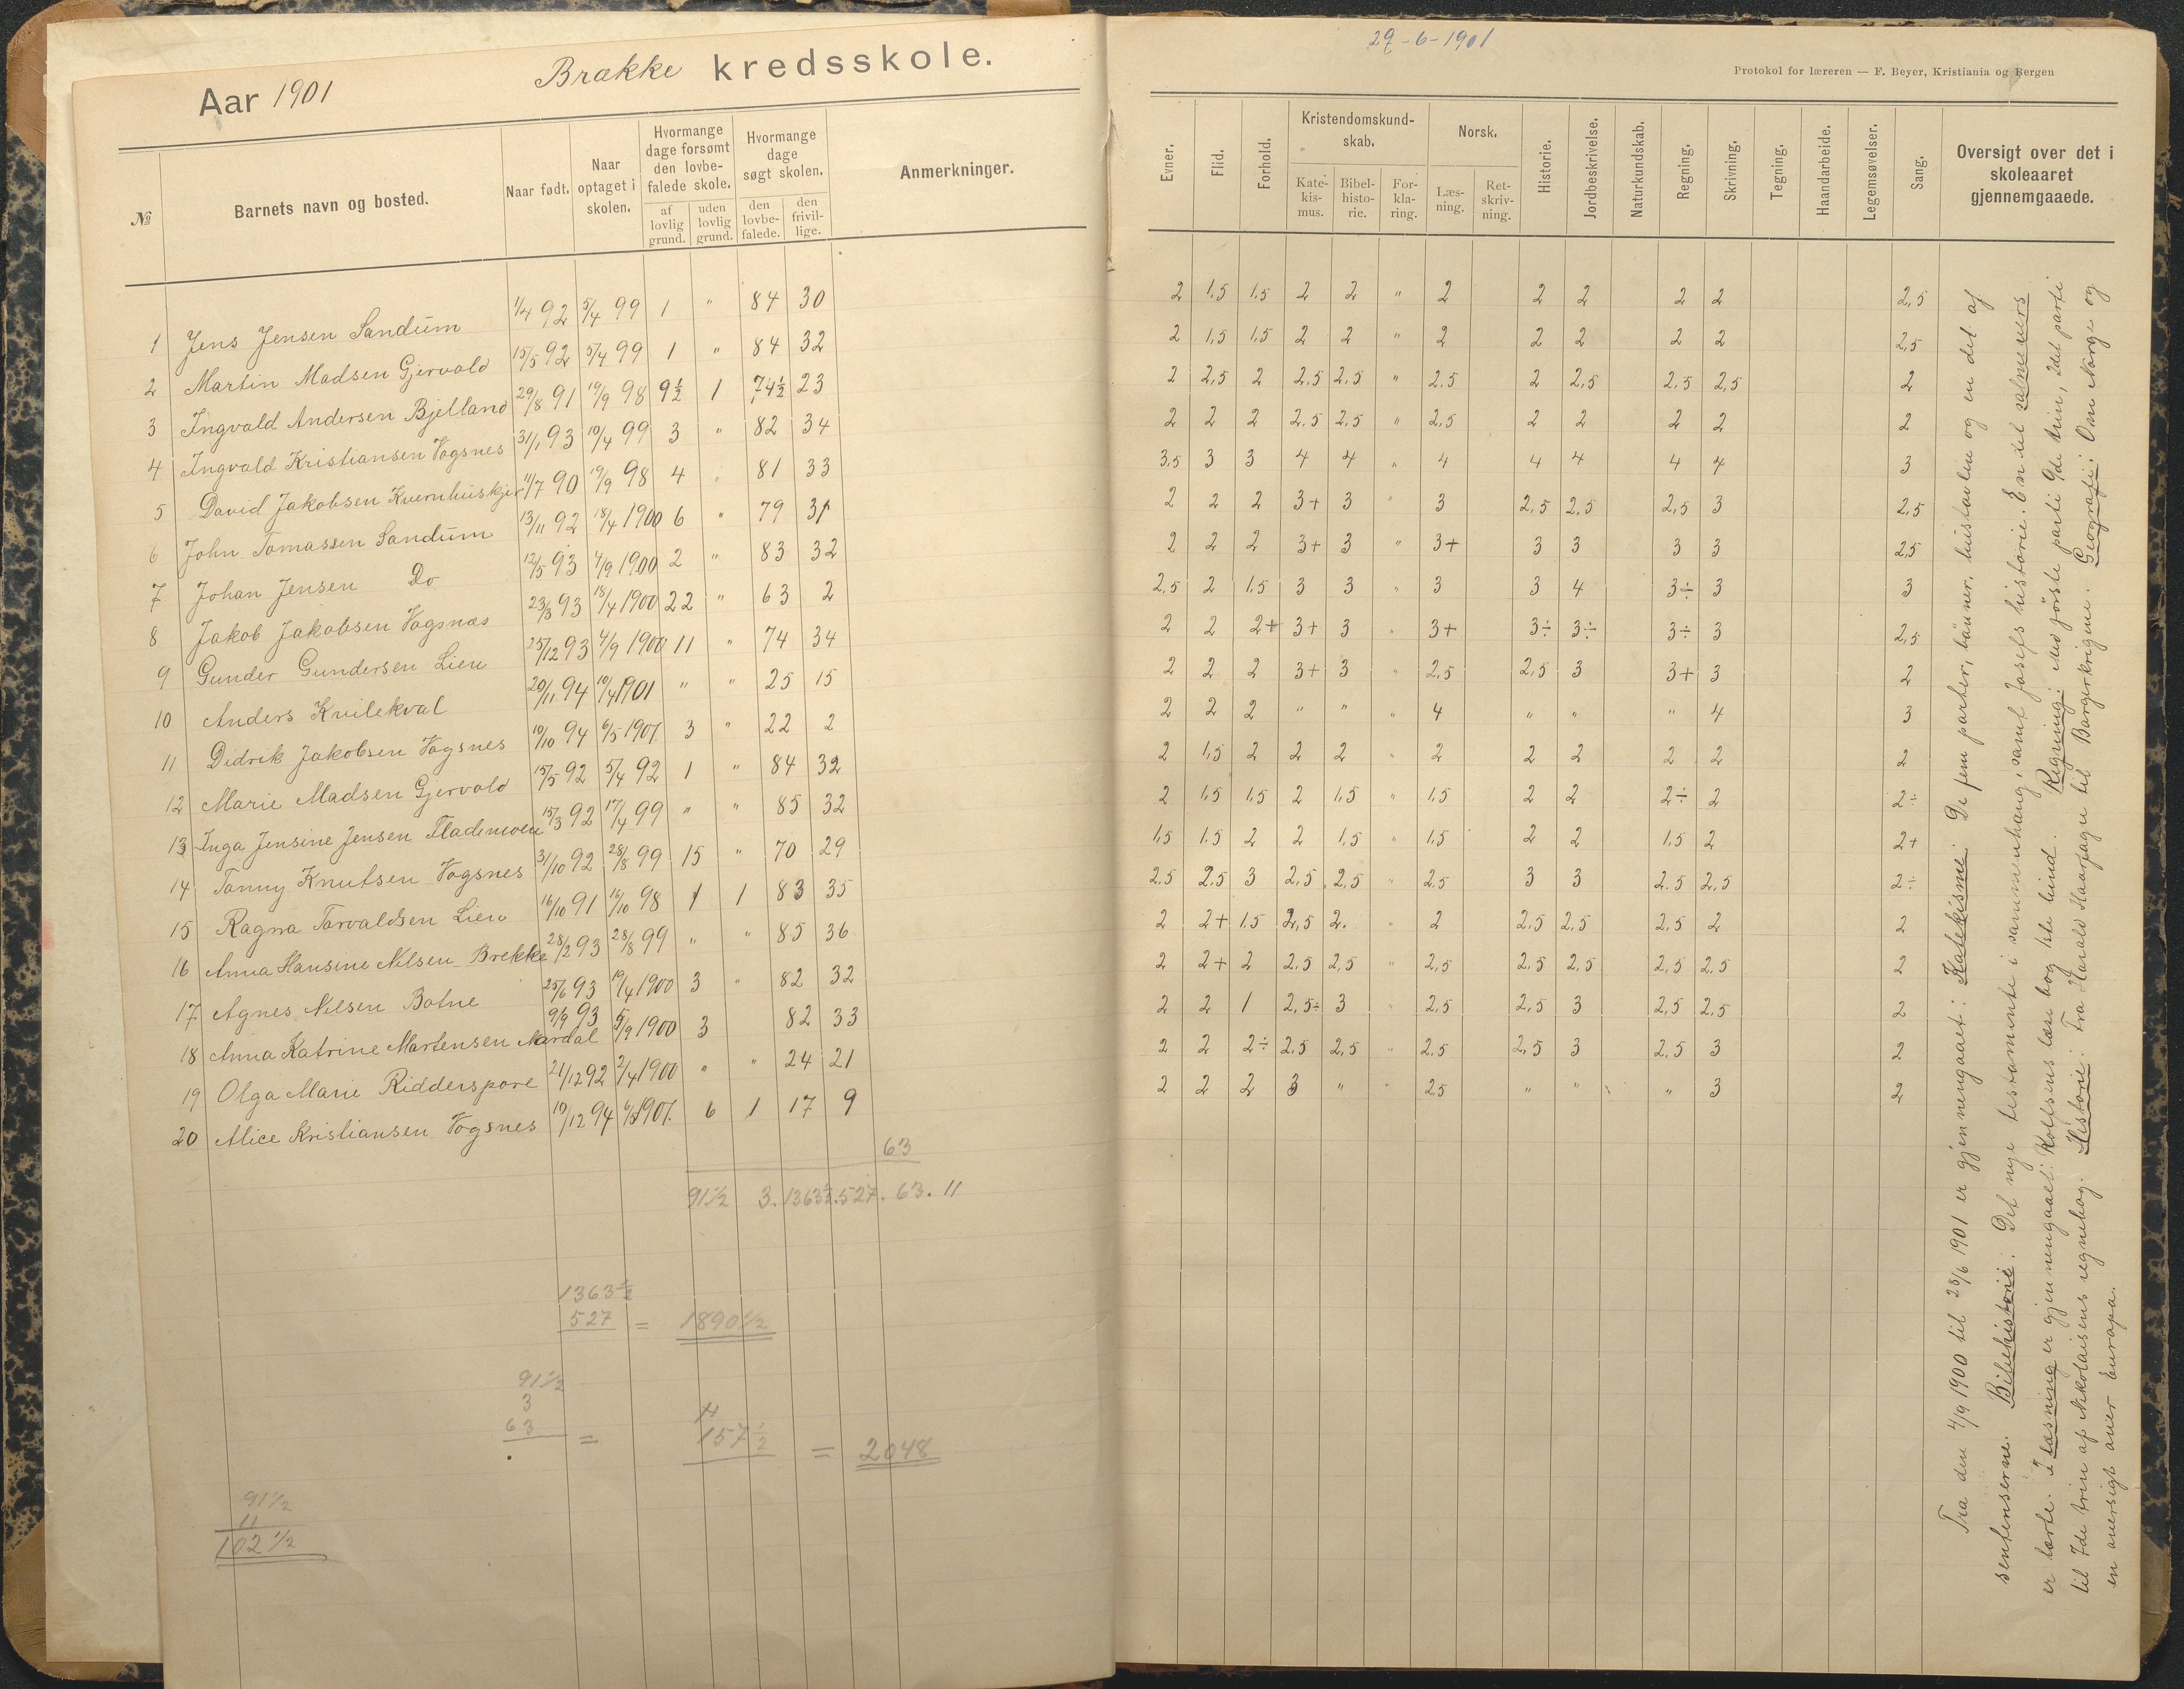 Aar 1901
Brække kredsskole.
№ Barnets navn og bosted. Naar født. Naar optaget i skolen. Hvormange dage forsømt den lovbefalede skole. af lovlig grund. uden lovlig grund. Hvormange dage søgt skolen. den lovbefalede. den frivillige. Anmerkninger.
1 Jens Jensen Sandum 1/4 92 5/4 99 1 " 84 30
2 Martin Madsen Gjervold 15/5 92 5/4 99 1 " 84 32
3 Ingvald Andersen Bjelland 29/8 91 19/9 98 9½ 1 74½ 23
4 Ingvald Kristiansen Vogsnes 31/1 93 10/4 99 3 " 82 34
5 David Jakobsen Kvernhuskjer 11/7 90 19/9 98 4 " 81 33
6 John Tomassen Sandum 13/11 92 18/4 1900 6 " 79 31
7 Johan Jensen Do 12/5 93 4/9 1900 2 " 83 32
8 Jakob Jakobsen Vogsnæs 23/3 93 18/4 1900 22 " 63 2
9 Gunder Gundersen Lien 25/12 93 4/9 1900 11 " 74 34
10 Anders Kvilekval 20/11 94 10/4 1901 " " 25 15
11 Didrik Jakobsen Vogsnes 19/10 94 6/5 1901. 3 " 22 2
12 Marie Madsen Gjervold 15/5 92 5/4 92 1 " 84 32
13 Inga Jensine Jensen Flademoen 15/3 92 17/4 99 " " 85 32
14 Tanny Knutsen Vogsnes 31/10 92 28/8 99 15 " 70 29
15 Ragna Torvaldsen Lien 16/10 91 16/10 98 1 1 83 35
16 Anna Hansine Nilsen Brekke 28/2 93 28/8 99 " " 85 36
17 Agnes Nilsen Botne 25/6 93 19/4 1900 3 " 82 32
18 Anna Katrine Martensen Mørdal 9/9 93 5/9 1900 3 82 33
19 Olga Marie Ridderspore 21/12 92 2/4 1900 " " 24 21
20 Alice Kristiansen Vogsnes 19/12 94 6/5 1901. 6 1 17 9
63
91½ 3. 1363½. 527. 63. 11
1363½
527 = 1890½
91½
3
63 = 157½ = 2048
91½
11
102½
29-6-1901
Protokol for læreren — F. Beyer, Kristiania og Bergen
Evner. Flid. Forhold. Kristendomskundskab. Katekismus. Bibelhistorie. Forklaring. Norsk. Læsning. Retskrivning. Historie. Jordbeskrivelse. Naturkundskab. Regning. Skrivning. Tegning. Haandarbeide. Legemsøvelser. Sang. Oversigt over det i skoleaaret gjennemgaaede.
2 1,5 1,5 2 2 " 2 2 2 2 2 2,5
2 1,5 1,5 2 2 " 2 2 2 2 2 2,5
2 2,5 2 2,5 2,5 " 2.5 2 2,5 2,5 2,5 2
2 2 2 2,5 2,5 " 2,5 2 2 2 2 2
3,5 3 3 4 4 " 4 4 4 4 4 3
2 2 2 3+ 3 " 3 2,5 2,5 2,5 3 2,5
2 2 2 3+ 3 " 3+ 3 3 3 3 2,5
2,5 2 1,5 3 3 " 3 3 4 3÷ 3 3
2 2 2+ 3+ 3 " 3+ 3÷ 3÷ 3÷ 3 2,5
2 2 2 3+ 3 " 2,5 2,5 3 3+ 3 2
2 2 2 " " " 4 " " " 4 3
2 1,5 2 2 2 " 2 2 2 2 2 2
2 1,5 1,5 2 1,5 " 1,5 2 2 2÷ 2 2÷
1,5 1,5 2 2 1,5 " 1,5 2 2 1,5 2 2+
2,5 2,5 3 2,5 2,5 " 2,5 3 3 2.5 2,5 2÷
2 2+ 1,5 2,5 2. " 2 2,5 2,5 2,5 2 2
2 2+ 2 2,5 2,5 " 2,5 2,5 2,5 2,5 2,5 2
2 2 1 2,5÷ 3 " 2,5 2,5 3 2,5 2,5 2
2 2 2÷ 2,5 2,5 " 2,5 2,5 3 2,5 3 2
2 2 2 3 " " 2,5 " " " 3 2
Fra den 4/9 1900 til 28/6 1901 er gjennemgaaet: Katekisme: De fem parter, bønner, hustavlen og en del af
sentenserne. Bibelhistorie: Det nye testamente i sammenhæng, samt Josefs historie. En del salmevers
er lærte. I læsning er gjennemgaaet: Rolfsens læsebog 1ste bind. Regning: Med første parti 9de trin, 2det parti
til 7de trin af Nikolaisens regnebog. Historie: Fra Harald Haarfagre til Borgerkrigene. Geografi: Om Norge og
en oversigt over Europa.